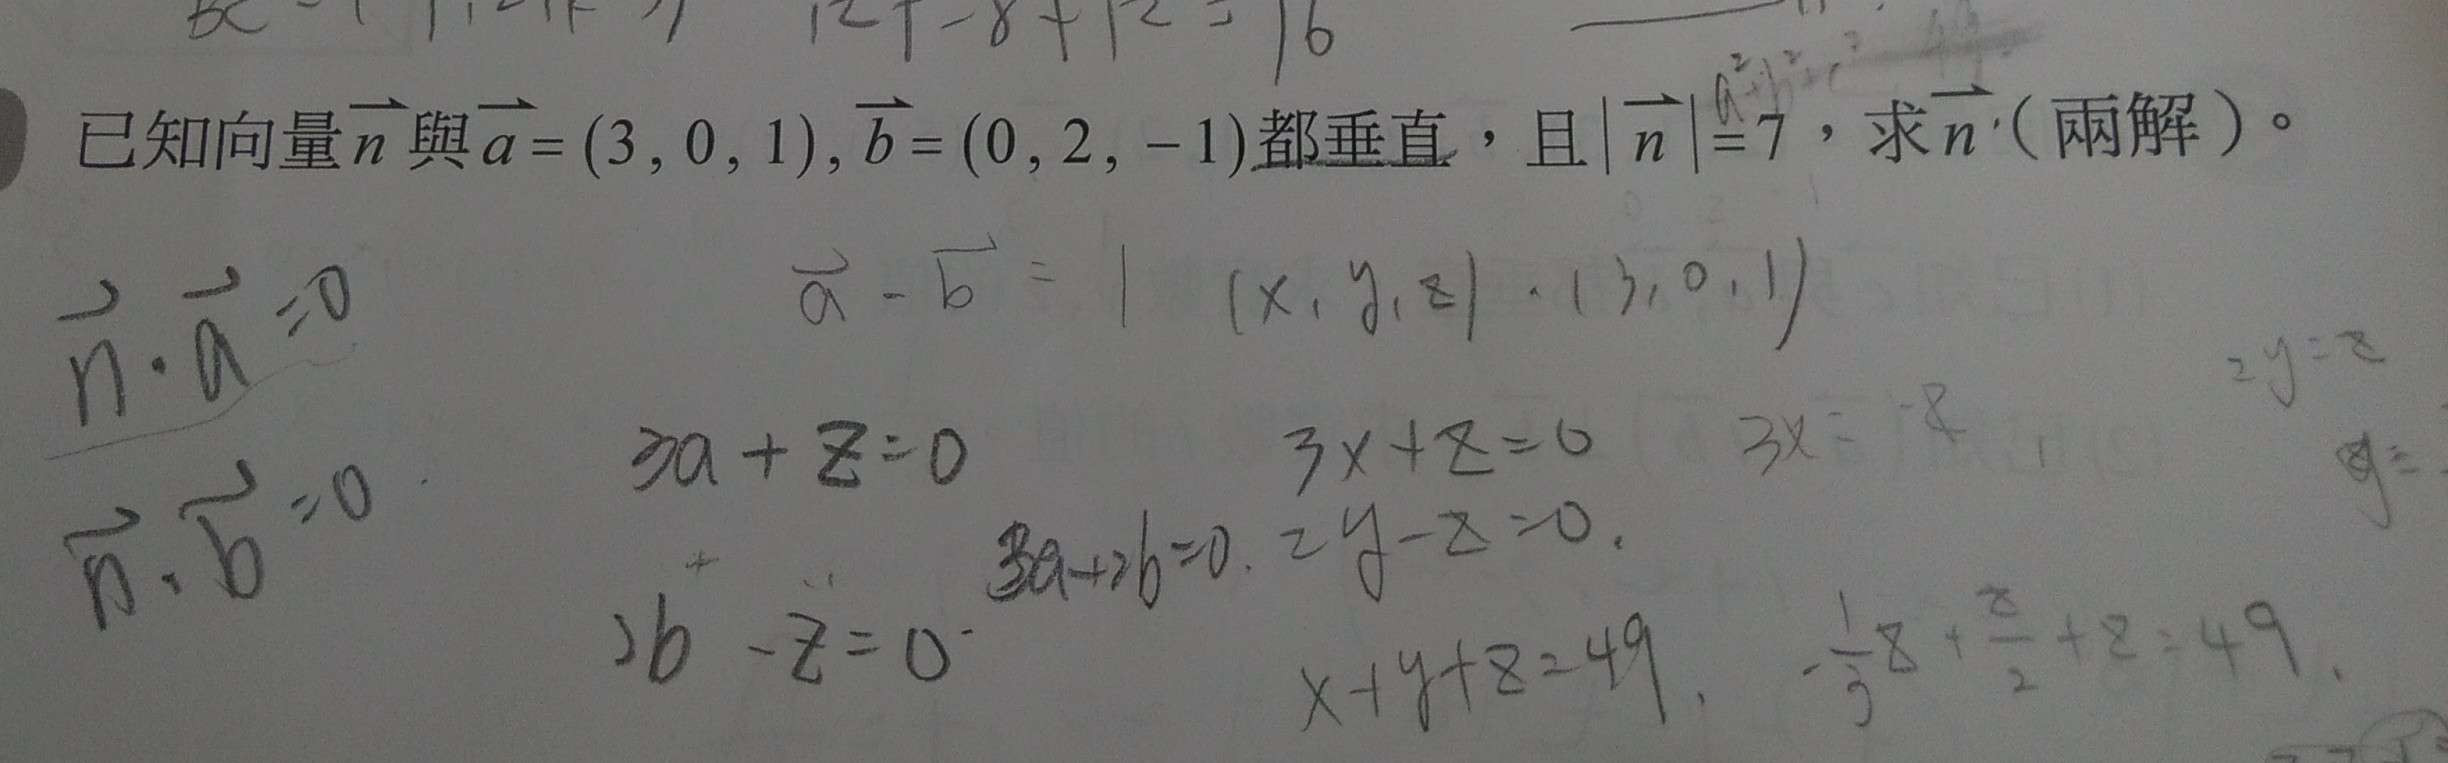 12+-8+12=16
已知向量n與a=(3,0,1),b=(0,2,-1)都垂直,且|n|=7,求n(兩解)。
n·a=0
a-b=1 (x,y,z)·(3,0,1)
2y=z
3a+z=0 3x+z=0 3x=-z
y=
n·b=0
3a+2b=0. 2y-z=0.
2b-z=0
x+y+z=49. -1/3z+z/2+z=49.